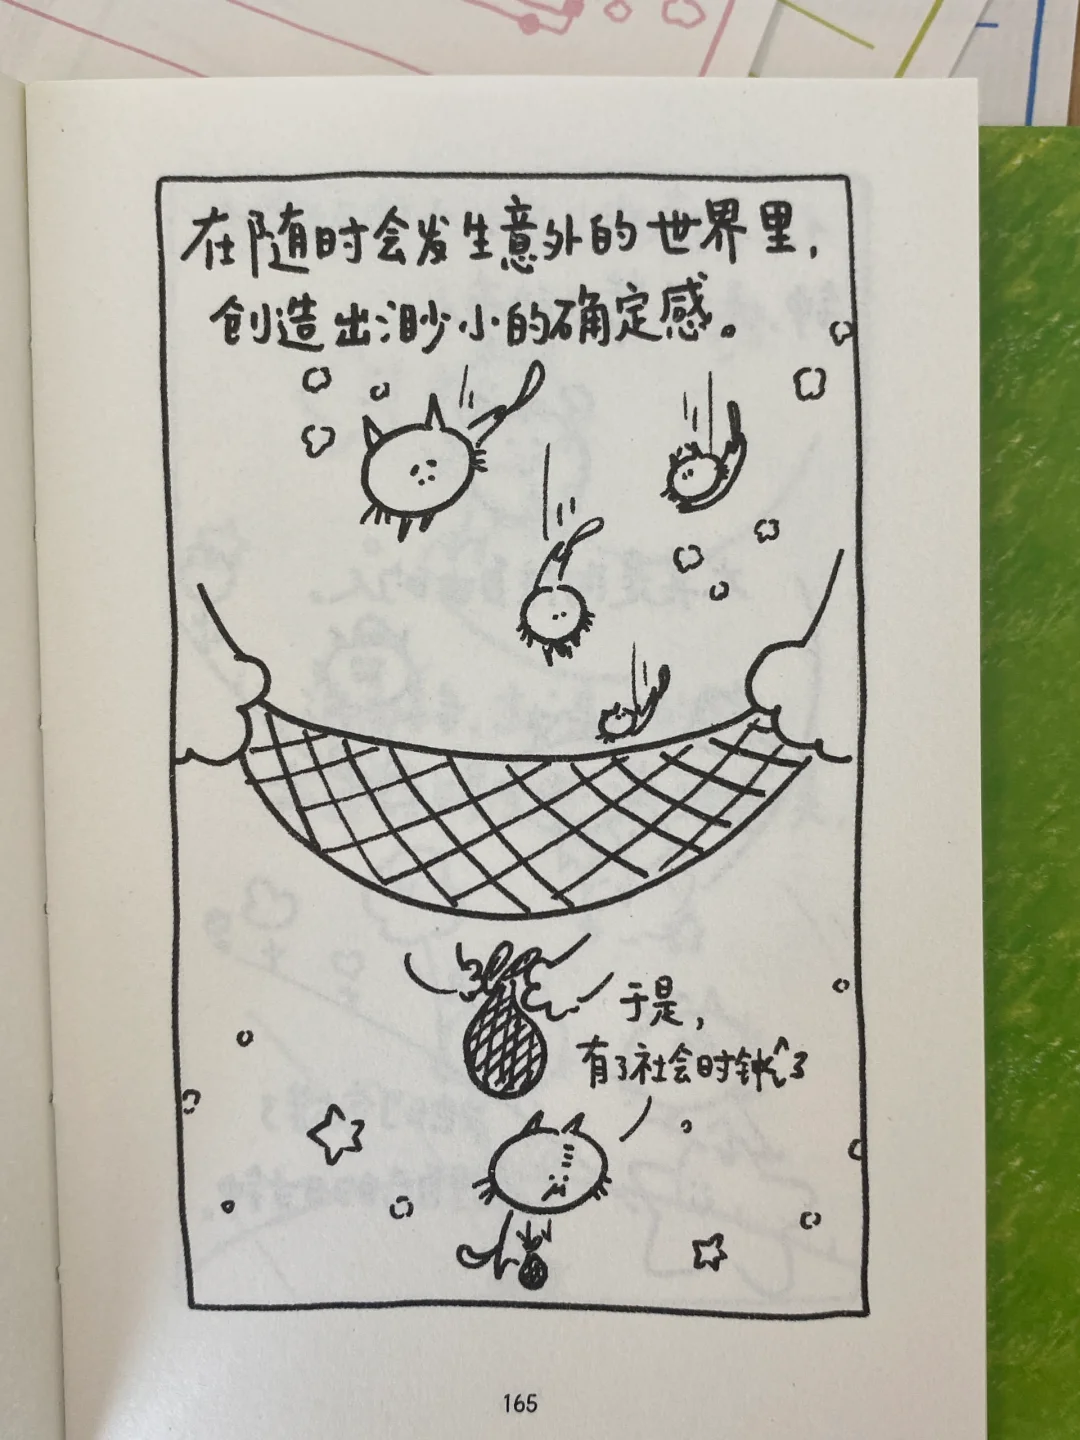 在随时会发生意外的世界里,
创造出渺小的确定感。
于是,
有了社会时钟
165